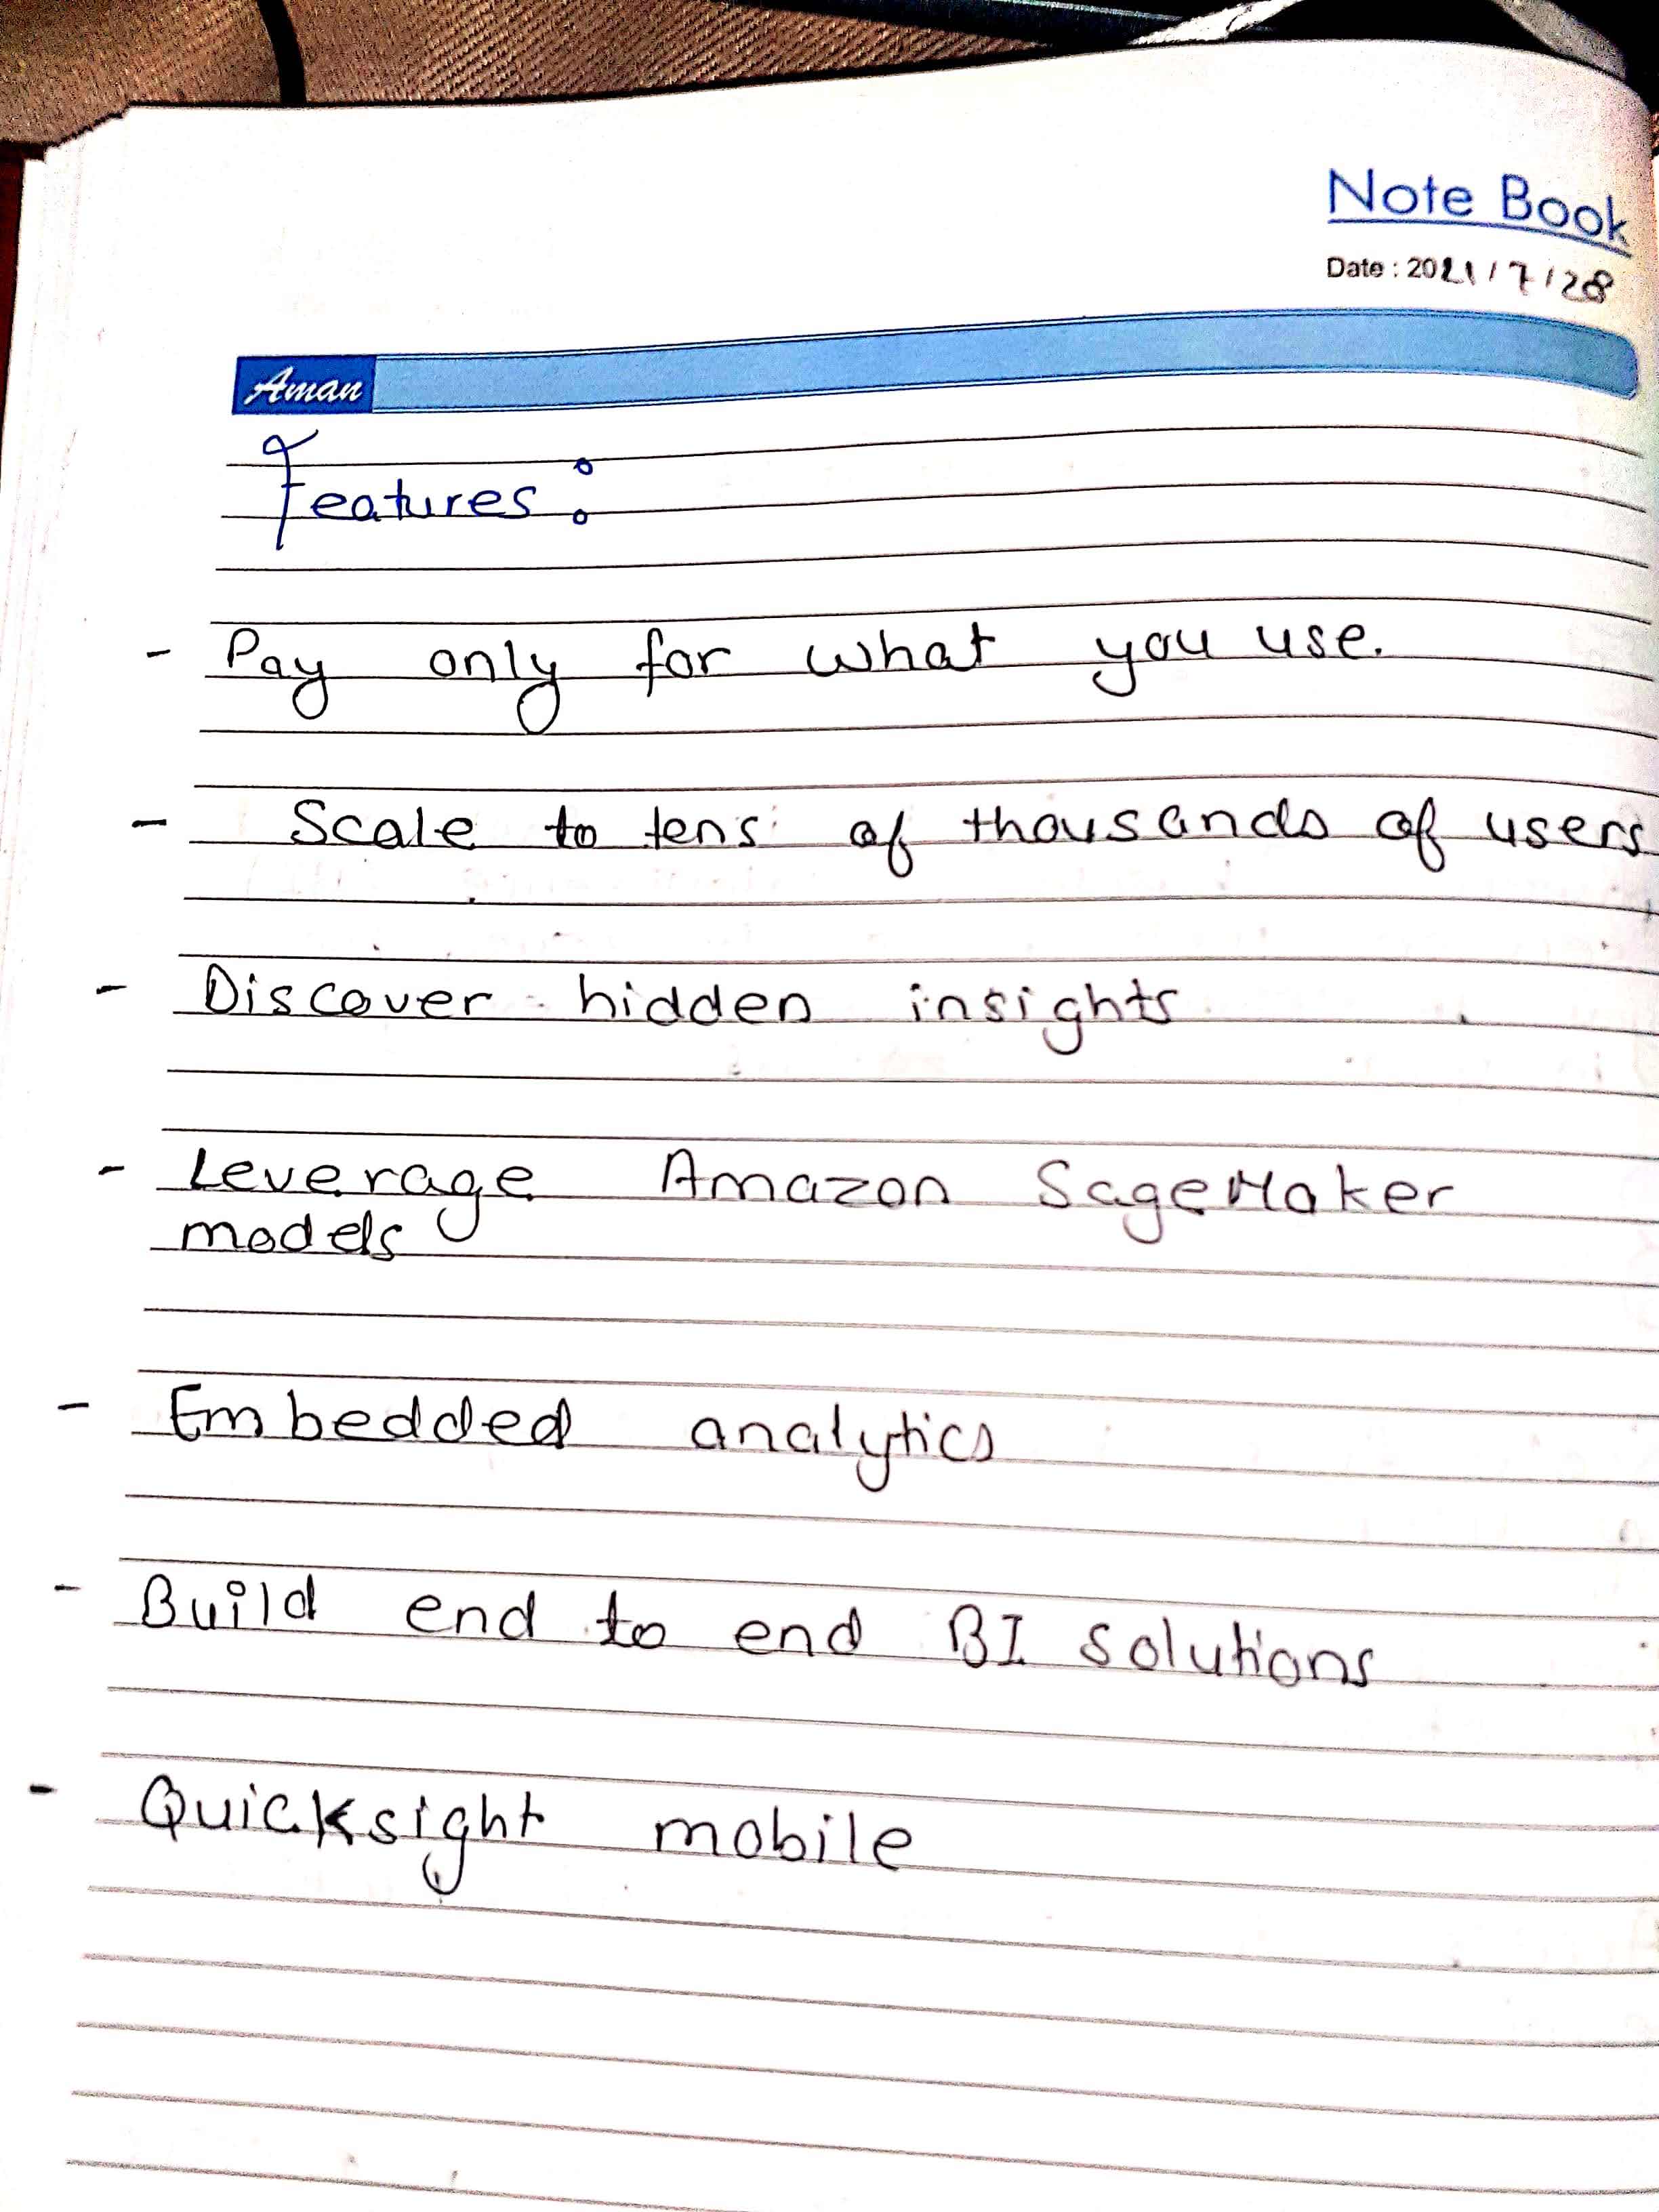 Note Book
Date : 2021/7/28
Aman
Features :
- Pay only for what you use.
- Scale to tens of thousands of users
- Discover hidden insights
- Leverage Amazon SageMaker
models
- Embedded analytics
- Build end to end BI solutions
- Quicksight mobile